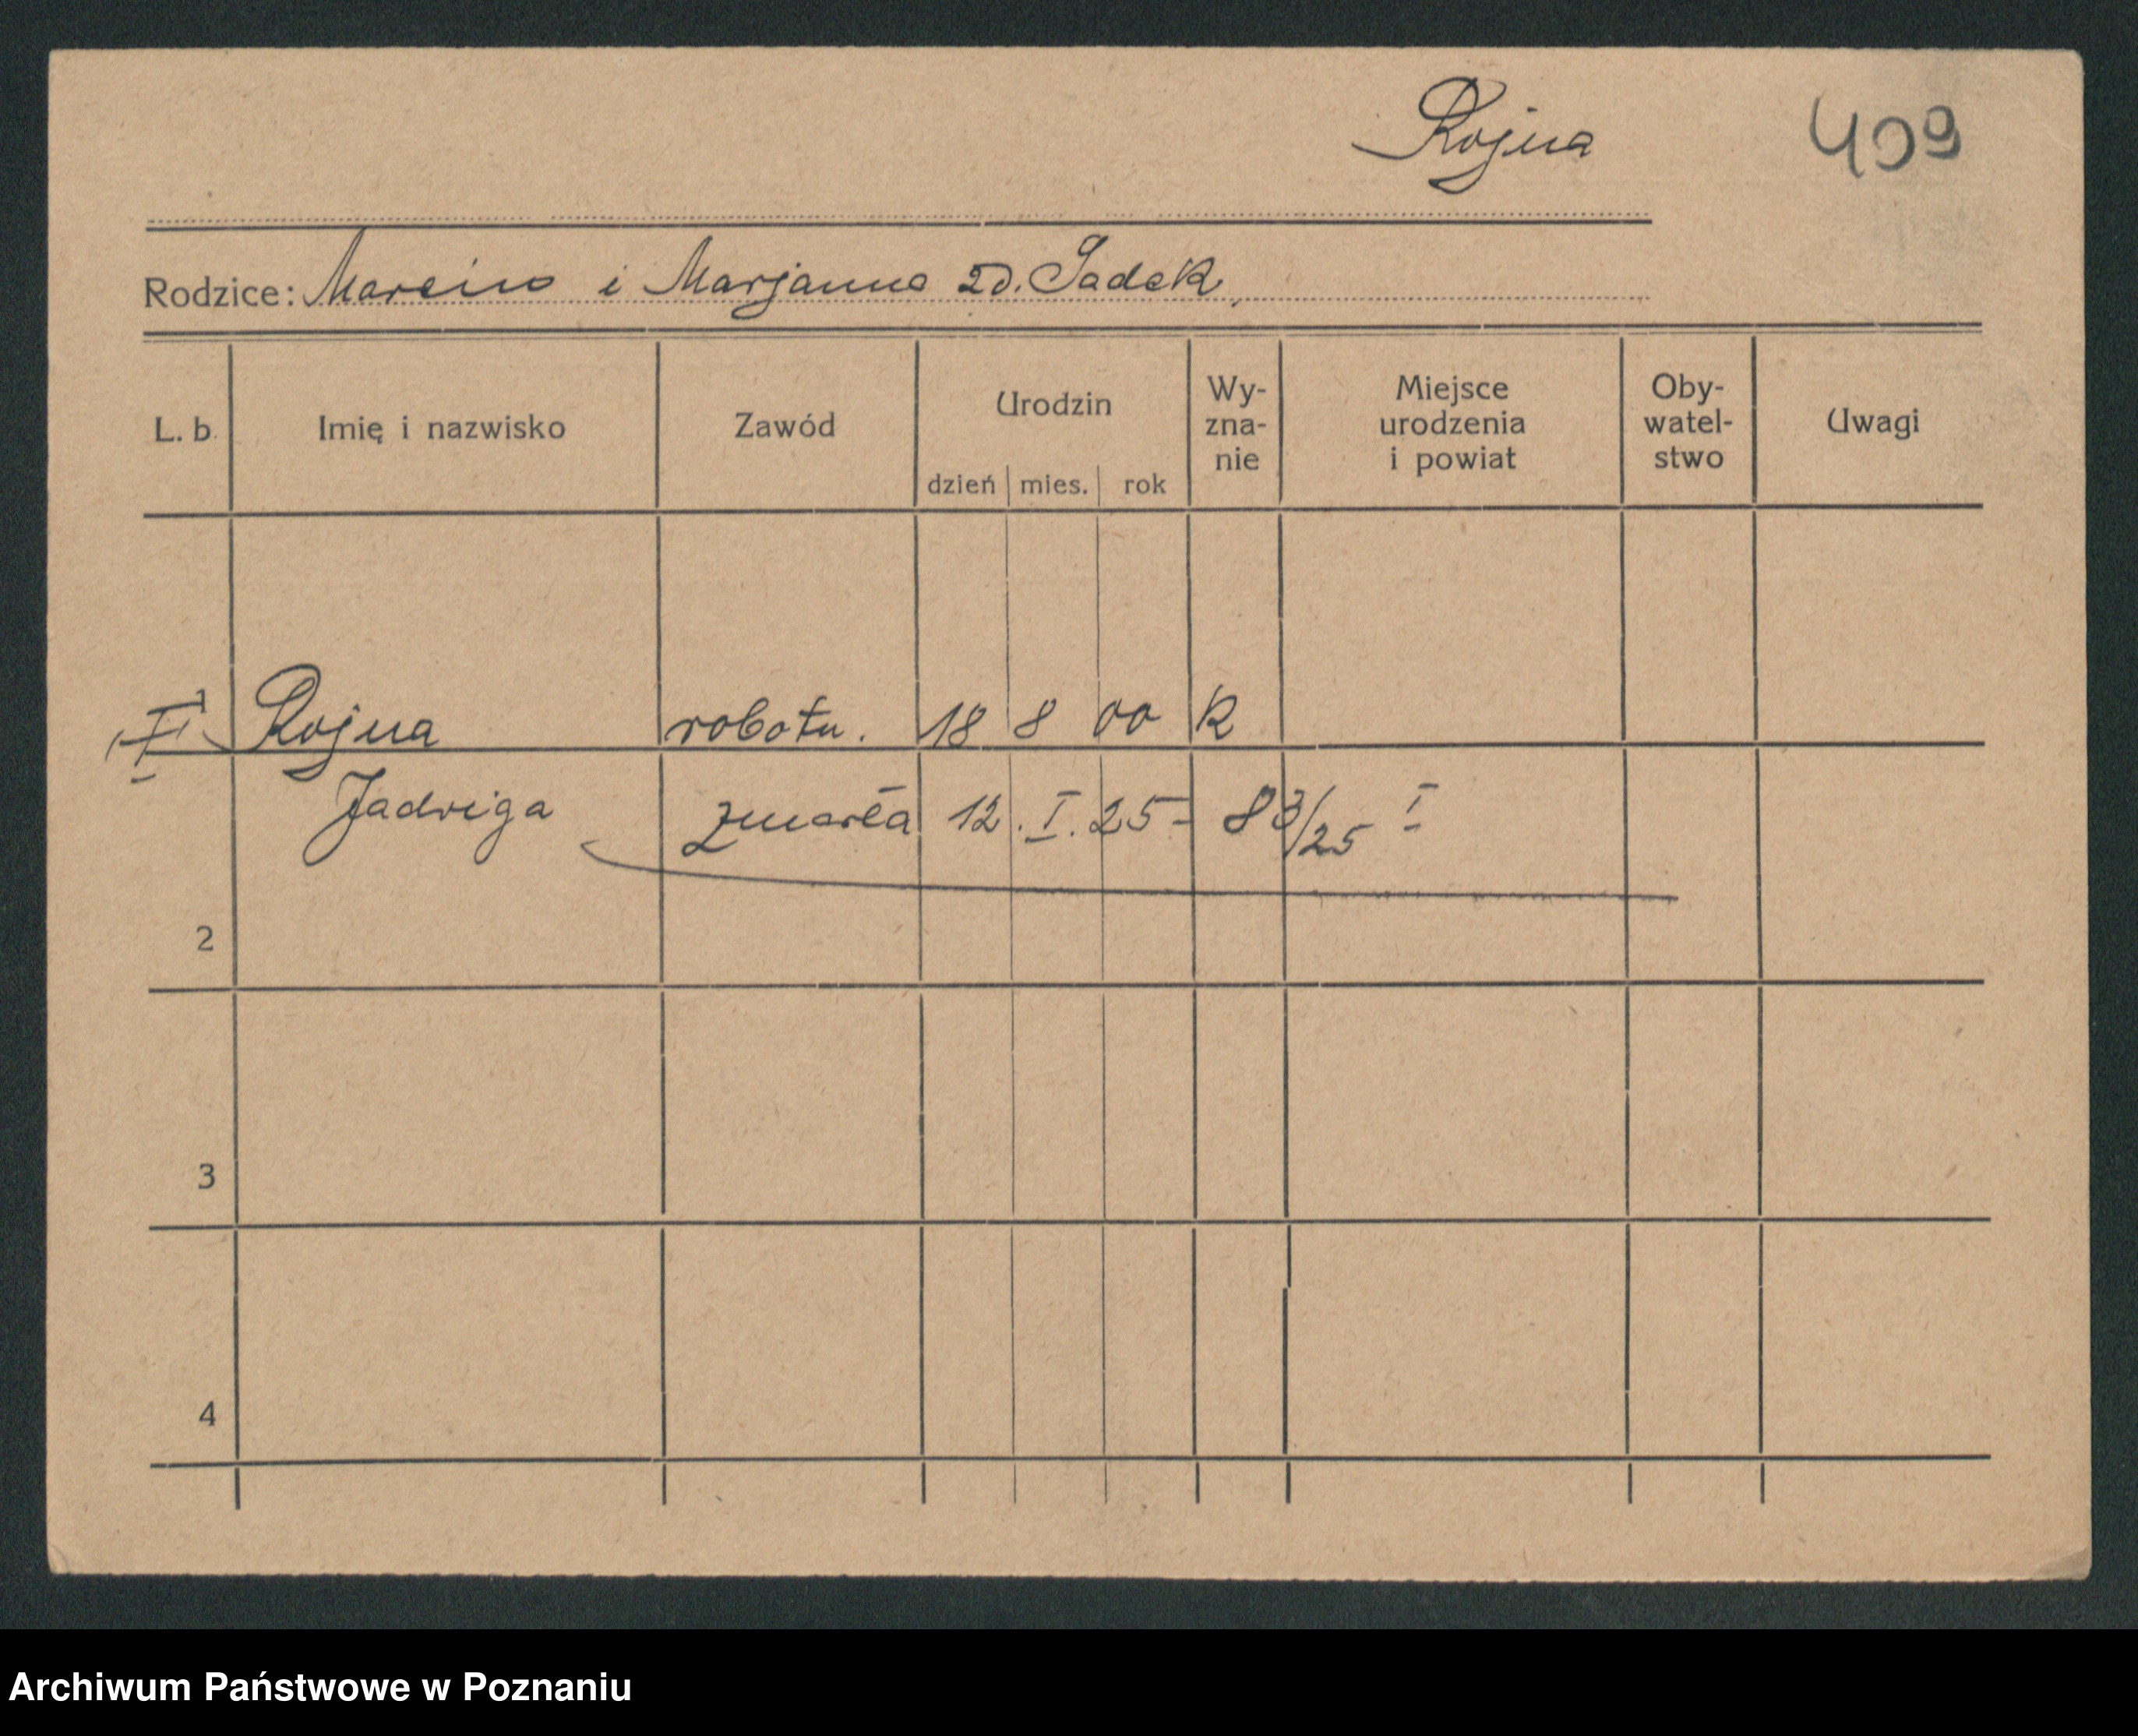 Rojna 409
Rodzice: Marcin i Marjanna zd. Sadek
L. b. Imię i nazwisko Zawód Urodzin Wy- zna- nie Miejsce urodzenia i powiat Oby- watel- stwo Uwagi
dzień mies. rok
Rojna robotn. 18 8 00 K
Jadwiga zmarła 12. I. 25 - 83/25 I
2
3
4
Archiwum Państwowe w Poznaniu